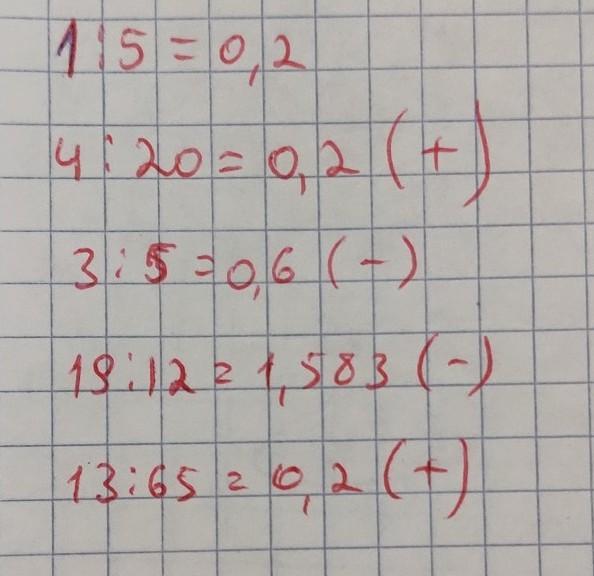 1:5=0,2
4:20=0,2 (+)
3:5=0,6 (-)
19:12=1,583 (-)
13:65=0,2 (+)